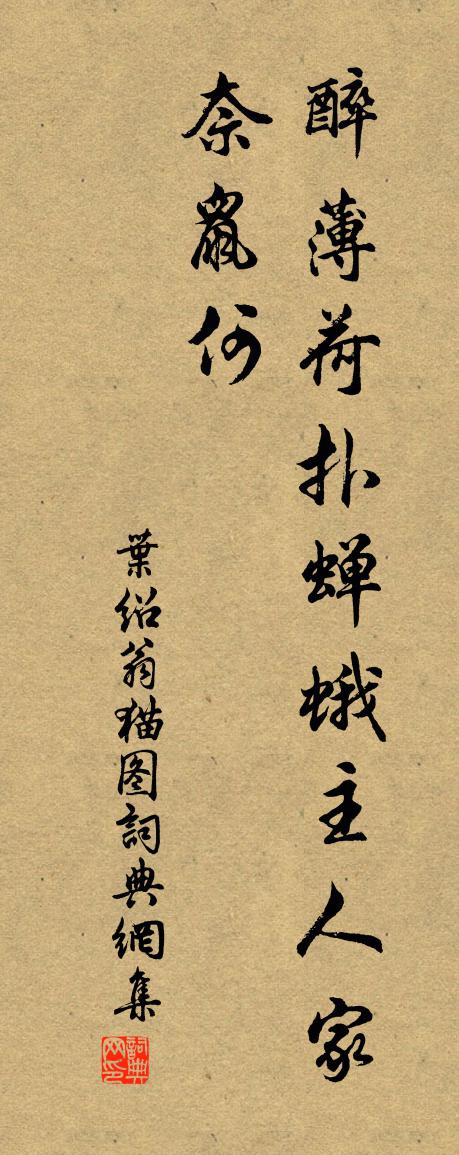 醉薄荷扑蝉蛾主人家
奈鼠何
葉绍翁猫图詞典網集
詞典
网印